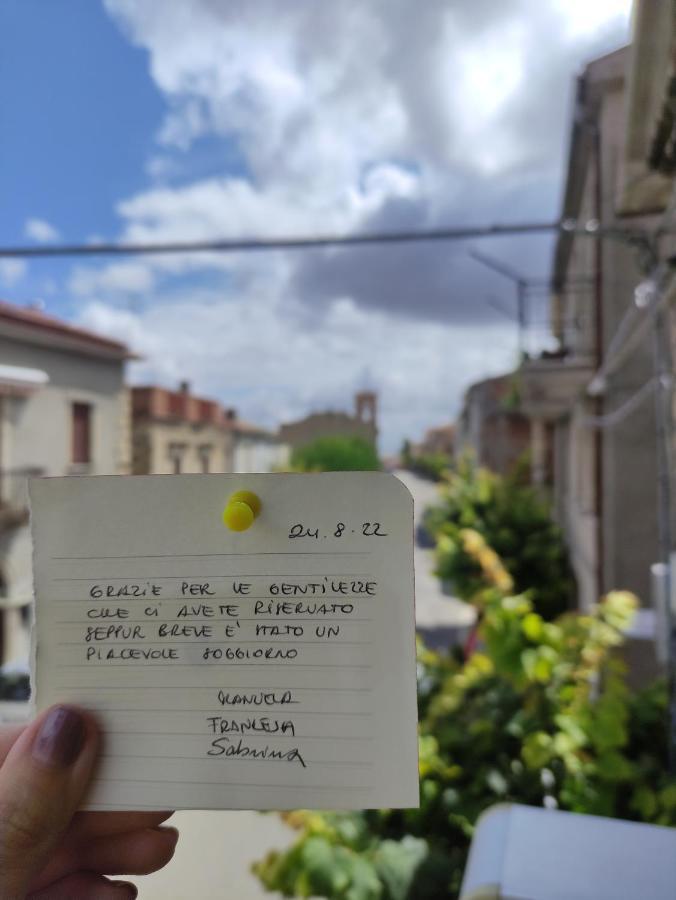 24.8.22
GRAZIE PER LE GENTILEZZE
CHE CI AVETE RISERVATO
SEPPUR BREVE E' STATO UN
PIACEVOLE SOGGIORNO
MANUELA
FRANCESCA
Sabrina